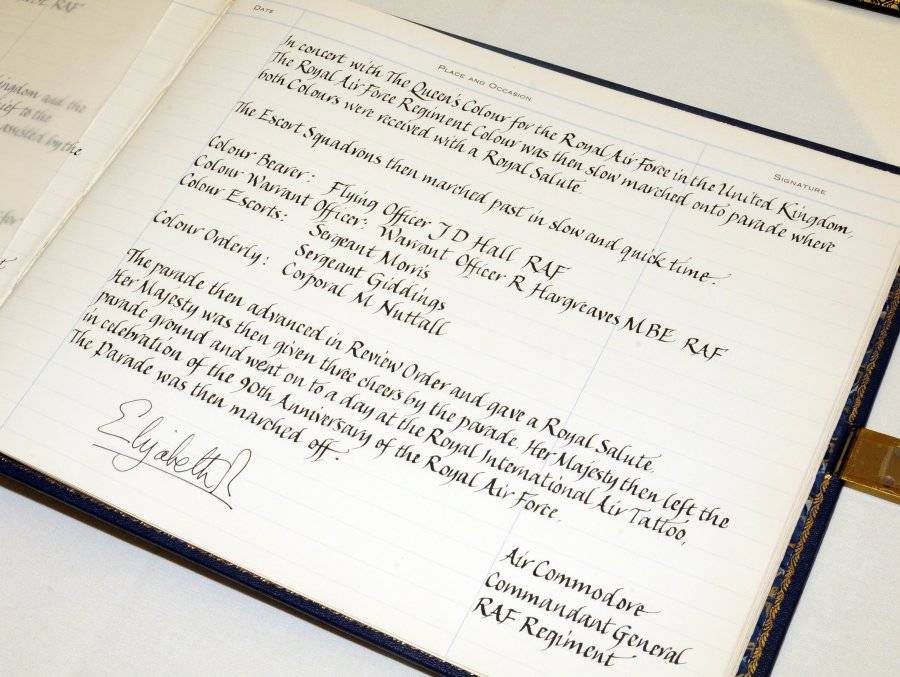 RAF"
Kingdom and the
to the
assisted by the
DATE
PLACE AND OCCASION
SIGNATURE
In concert with The Queen's Colour for the Royal Air Force in the United Kingdom,
The Royal Air Force Regiment Colour was then slow marched onto parade where
both Colours were received with a Royal Salute.
The Escort Squadrons then marched past in slow and quick time.
Colour Bearer: Flying Officer J D Hall RAF
Colour Warrant Officer: Warrant Officer R Hargreaves MBE RAF
Colour Escorts: Sergeant Morris
Sergeant Giddings
Colour Orderly: Corporal M Nuttall
The parade then advanced in Review Order and gave a Royal Salute.
Her Majesty was then given three cheers by the parade. Her Majesty then left the
parade ground and went on to a day at the Royal International Air Tattoo,
in celebration of the 90th Anniversary of the Royal Air Force.
The Parade was then marched off.
Elizabeth R
Air Commodore
Commandant General
RAF Regiment